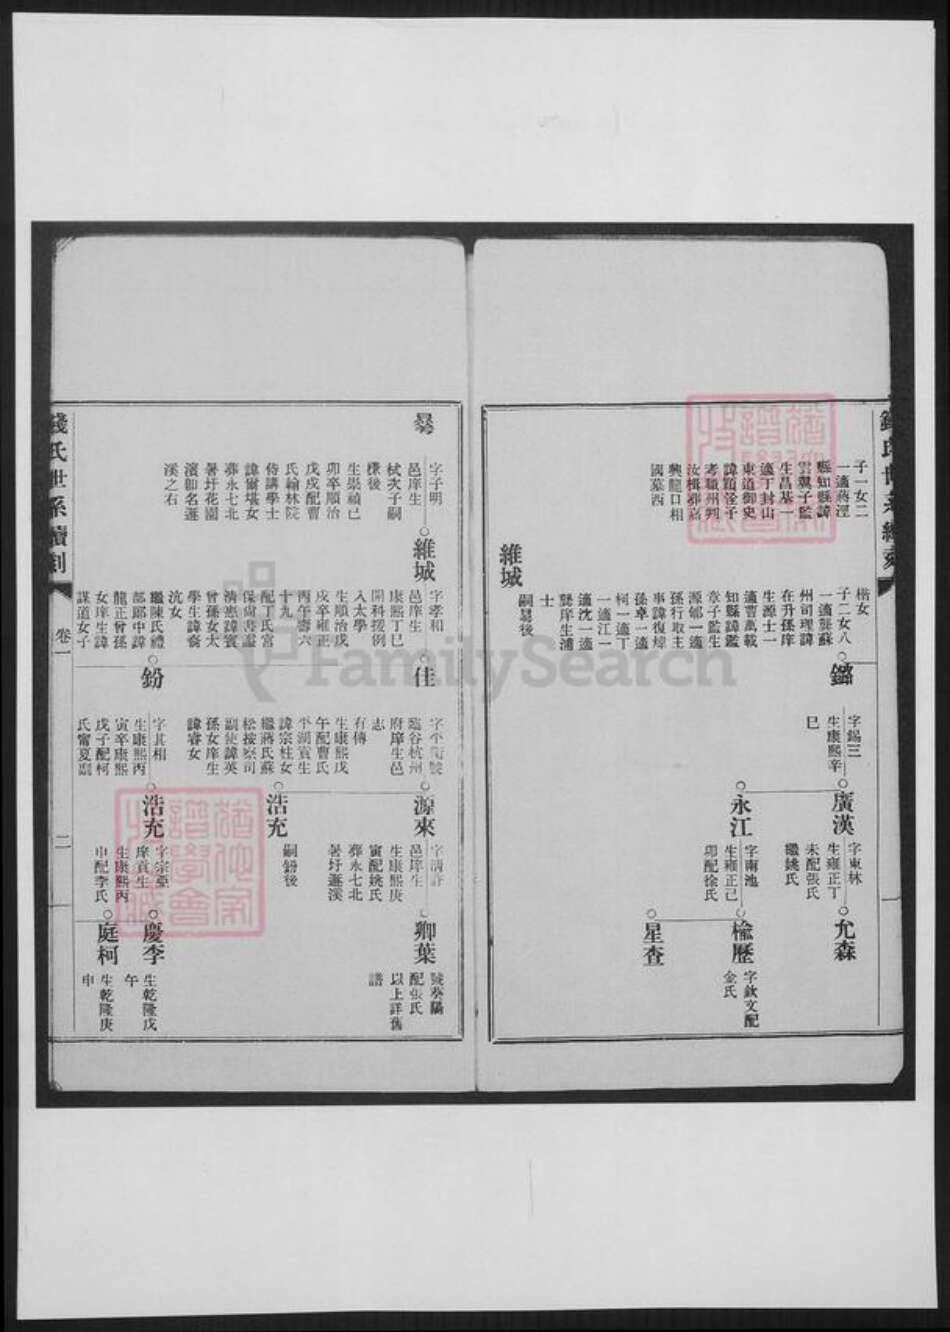 子一女二
一適蔣涇
縣知縣諱
雲翼子監
生昌基一
適丁封山
東道御史
諱
考職州判
汝楫葬嘉
興龍口相
國墓西
維城
嗣㝷後
楷女
子二女八
一適龔蘇
州司理諱
在升孫庠
生源士一
適曹萬載
知縣諱鑑
章子監生
源郇一適
孫行取主
事諱復煒
孫卓一適
柯一適丁
一適江一
適沈一適
賢庠生浦
士
鏴
字錫三
生康熙辛
巳
廣漢
字東林
生雍正丁
未配張氏
繼姚氏
永江
字南池
生雍正己
卯配徐氏
允森
楡歷
字欽文配
金氏
星查
㝷
字子明
邑庠生
棫次子嗣
樸後
生崇禎己
卯卒順治
戊戌配曹
氏翰林院
侍講學士
諱爾堪女
葬永七北
署圩花園
濱卽名遯
溪之右
維城
字孝和
邑庠生
康熙丁巳
開科援例
入太學
生順治戊
戌卒雍正
丙午壽六
十九
配丁氏宮
保尙書諡
清惠諱賓
曾孫女太
學生諱裔
沆女
繼陳氏禮
部郎中諱
龍正曾孫
女庠生諱
謀道女子
佳
字平衡號
臨谷杭州
府庠生邑
志
有傳
生康熙戊
午配曹氏
平湖貢生
諱宗柱女
繼蔣氏蘇
松按察司
副使諱英
孫女庠生
諱睿女
鈖
字其相
生康熙丙
寅卒康熙
戊子配柯
氏甯夏副
源來
字清許
邑庠生
生康熙庚
寅配姚氏
葬永七北
署圩遯溪
浩充
嗣鈖後
浩充
字宗亞
庠貢生
生康熙丙
申配李氏
卿葉
號葵陽
配張氏
以上詳舊
譜
慶李
生乾隆戊
午
庭柯
生乾隆庚
申
錢氏世系續刻
卷一
二
FamilySearch